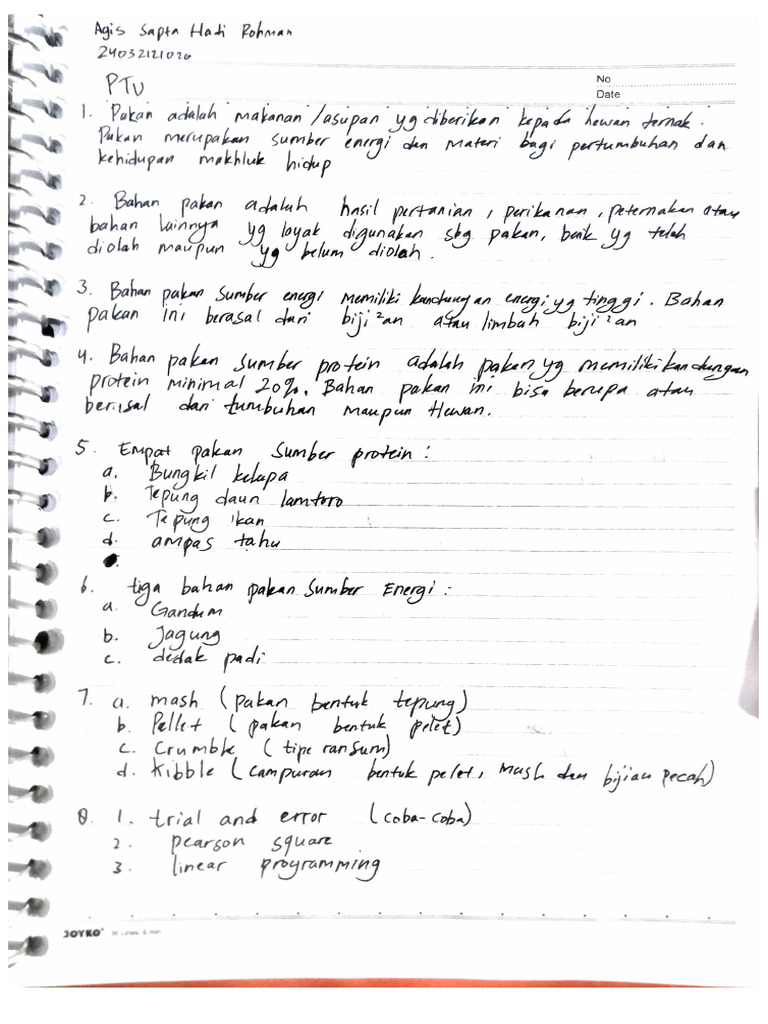 Agis Sapta Hadi Rohman
24032121020
PTU
No
Date
1. Pakan adalah makanan/asupan yg diberikan kepada hewan ternak.
Pakan merupakan sumber energi dan materi bagi pertumbuhan dan
kehidupan makhluk hidup
2. Bahan pakan adalah hasil pertanian, perikanan, peternakan atau
bahan lainnya yg layak digunakan sbg pakan, baik yg telah
diolah maupun yg belum diolah.
3. Bahan pakan sumber energi memiliki kandungan energi yg tinggi. Bahan
pakan ini berasal dari biji²an atau limbah biji²an
4. Bahan pakan sumber protein adalah pakan yg memiliki kandungan
protein minimal 20%. Bahan pakan ini bisa berupa atau
berasal dari tumbuhan maupun Hewan.
5. Empat pakan sumber protein :
a. Bungkil kelapa
b. Tepung daun lamtoro
c. Tepung ikan
d. ampas tahu
6. tiga bahan pakan sumber Energi :
a. Gandum
b. Jagung
c. dedak padi
7. a. mash (pakan bentuk tepung)
b. Pellet (pakan bentuk pelet)
c. Crumble (tipe ransum)
d. Kibble (campuran bentuk pelet, mash dan bijian pecah)
8. 1. trial and error (coba-coba)
2. pearson square
3. linear programming
JOYKO 36 Lines, 6 mm